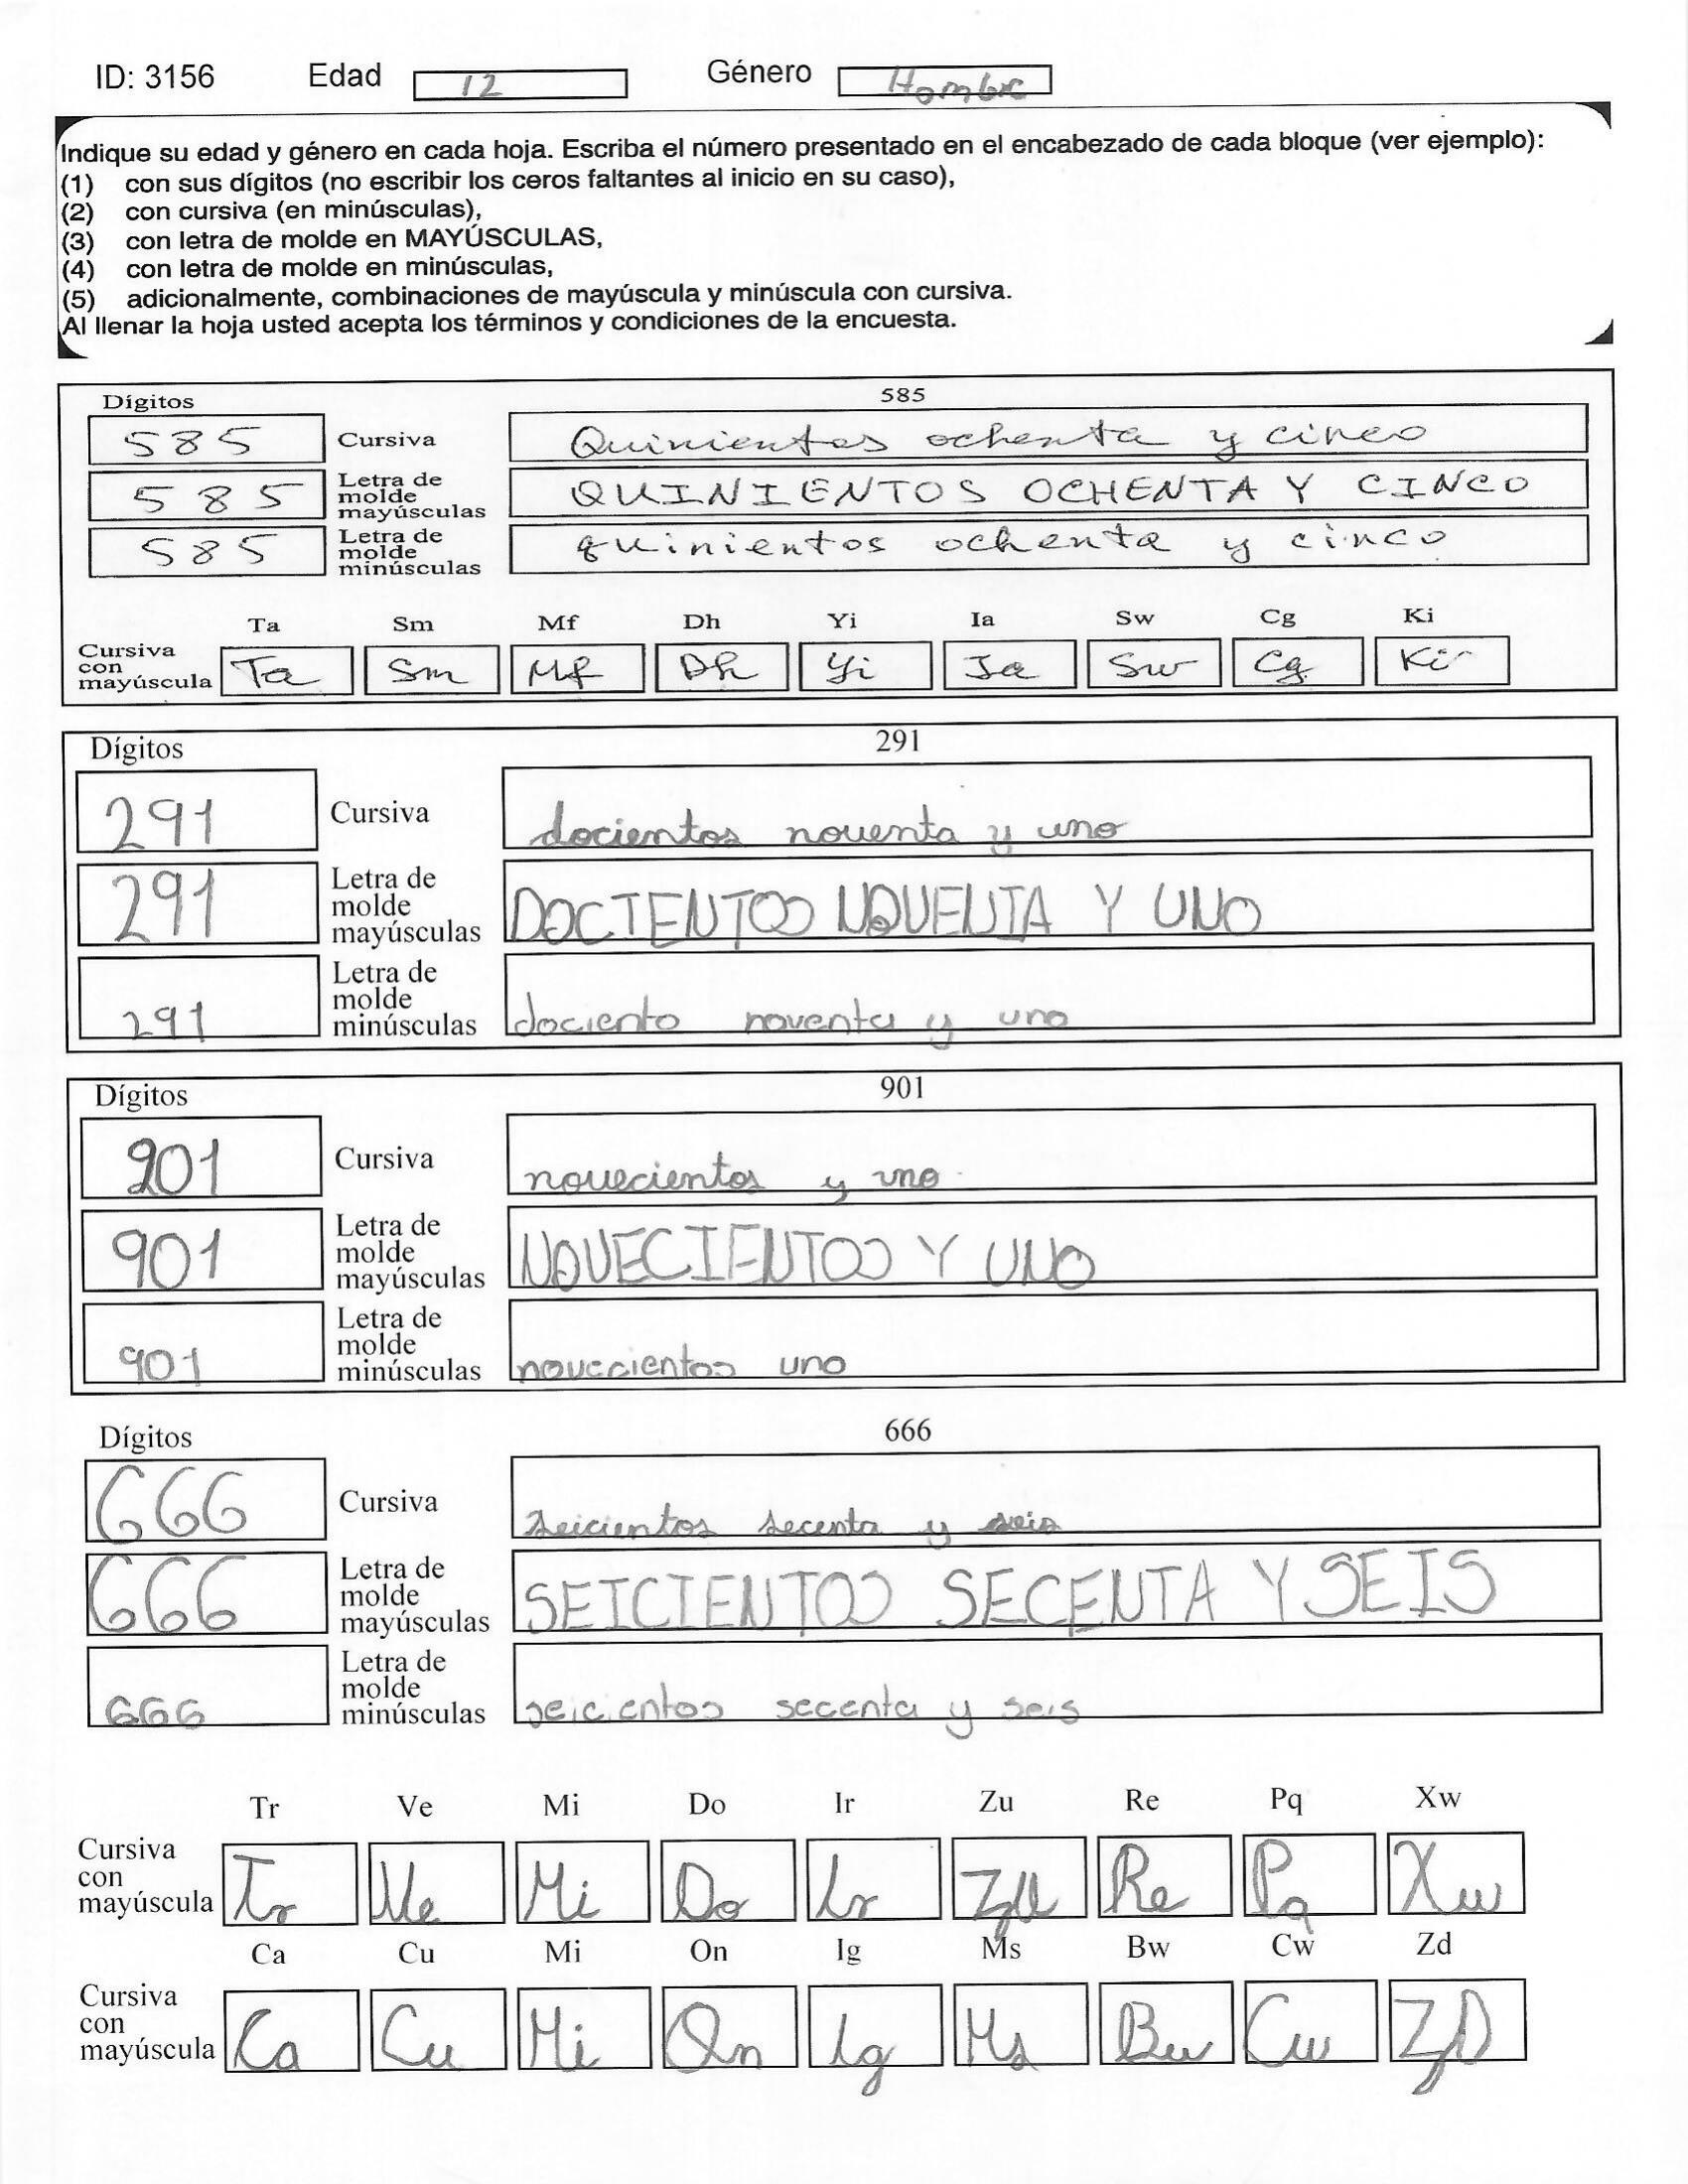 ID: 3156 Edad 12 Género Hombre
Indique su edad y género en cada hoja. Escriba el número presentado en el encabezado de cada bloque (ver ejemplo):
(1) con sus dígitos (no escribir los ceros faltantes al inicio en su caso),
(2) con cursiva (en minúsculas),
(3) con letra de molde en MAYÚSCULAS,
(4) con letra de molde en minúsculas,
(5) adicionalmente, combinaciones de mayúscula y minúscula con cursiva.
Al llenar la hoja usted acepta los términos y condiciones de la encuesta.
Dígitos 585
585 Cursiva Quinientos ochenta y cinco
585 Letra de molde mayúsculas QUINIENTOS OCHENTA Y CINCO
585 Letra de molde minúsculas quinientos ochenta y cinco
Ta Sm Mf Dh Yi Ia Sw Cg Ki
Cursiva con mayúscula Ta Sm Mf Dh Yi Ia Sw Cg Ki
Dígitos 291
291 Cursiva docientos noventa y uno
291 Letra de molde mayúsculas DOCIENTOS NOVENTA Y UNO
291 Letra de molde minúsculas dociento noventa y uno
Dígitos 901
901 Cursiva novecientos y uno
901 Letra de molde mayúsculas NOVECIENTOS Y UNO
901 Letra de molde minúsculas novecientos uno
Dígitos 666
666 Cursiva seicientos secenta y seis
666 Letra de molde mayúsculas SEICIENTOS SECENTA Y SEIS
666 Letra de molde minúsculas seicientos secenta y seis
Tr Ve Mi Do Ir Zu Re Pq Xw
Cursiva con mayúscula Tr Ve Mi Do Ir Zu Re Pq Xw
Ca Cu Mi On Ig Ms Bw Cw Zd
Cursiva con mayúscula Ca Cu Mi On Ig Ms Bw Cw ZD